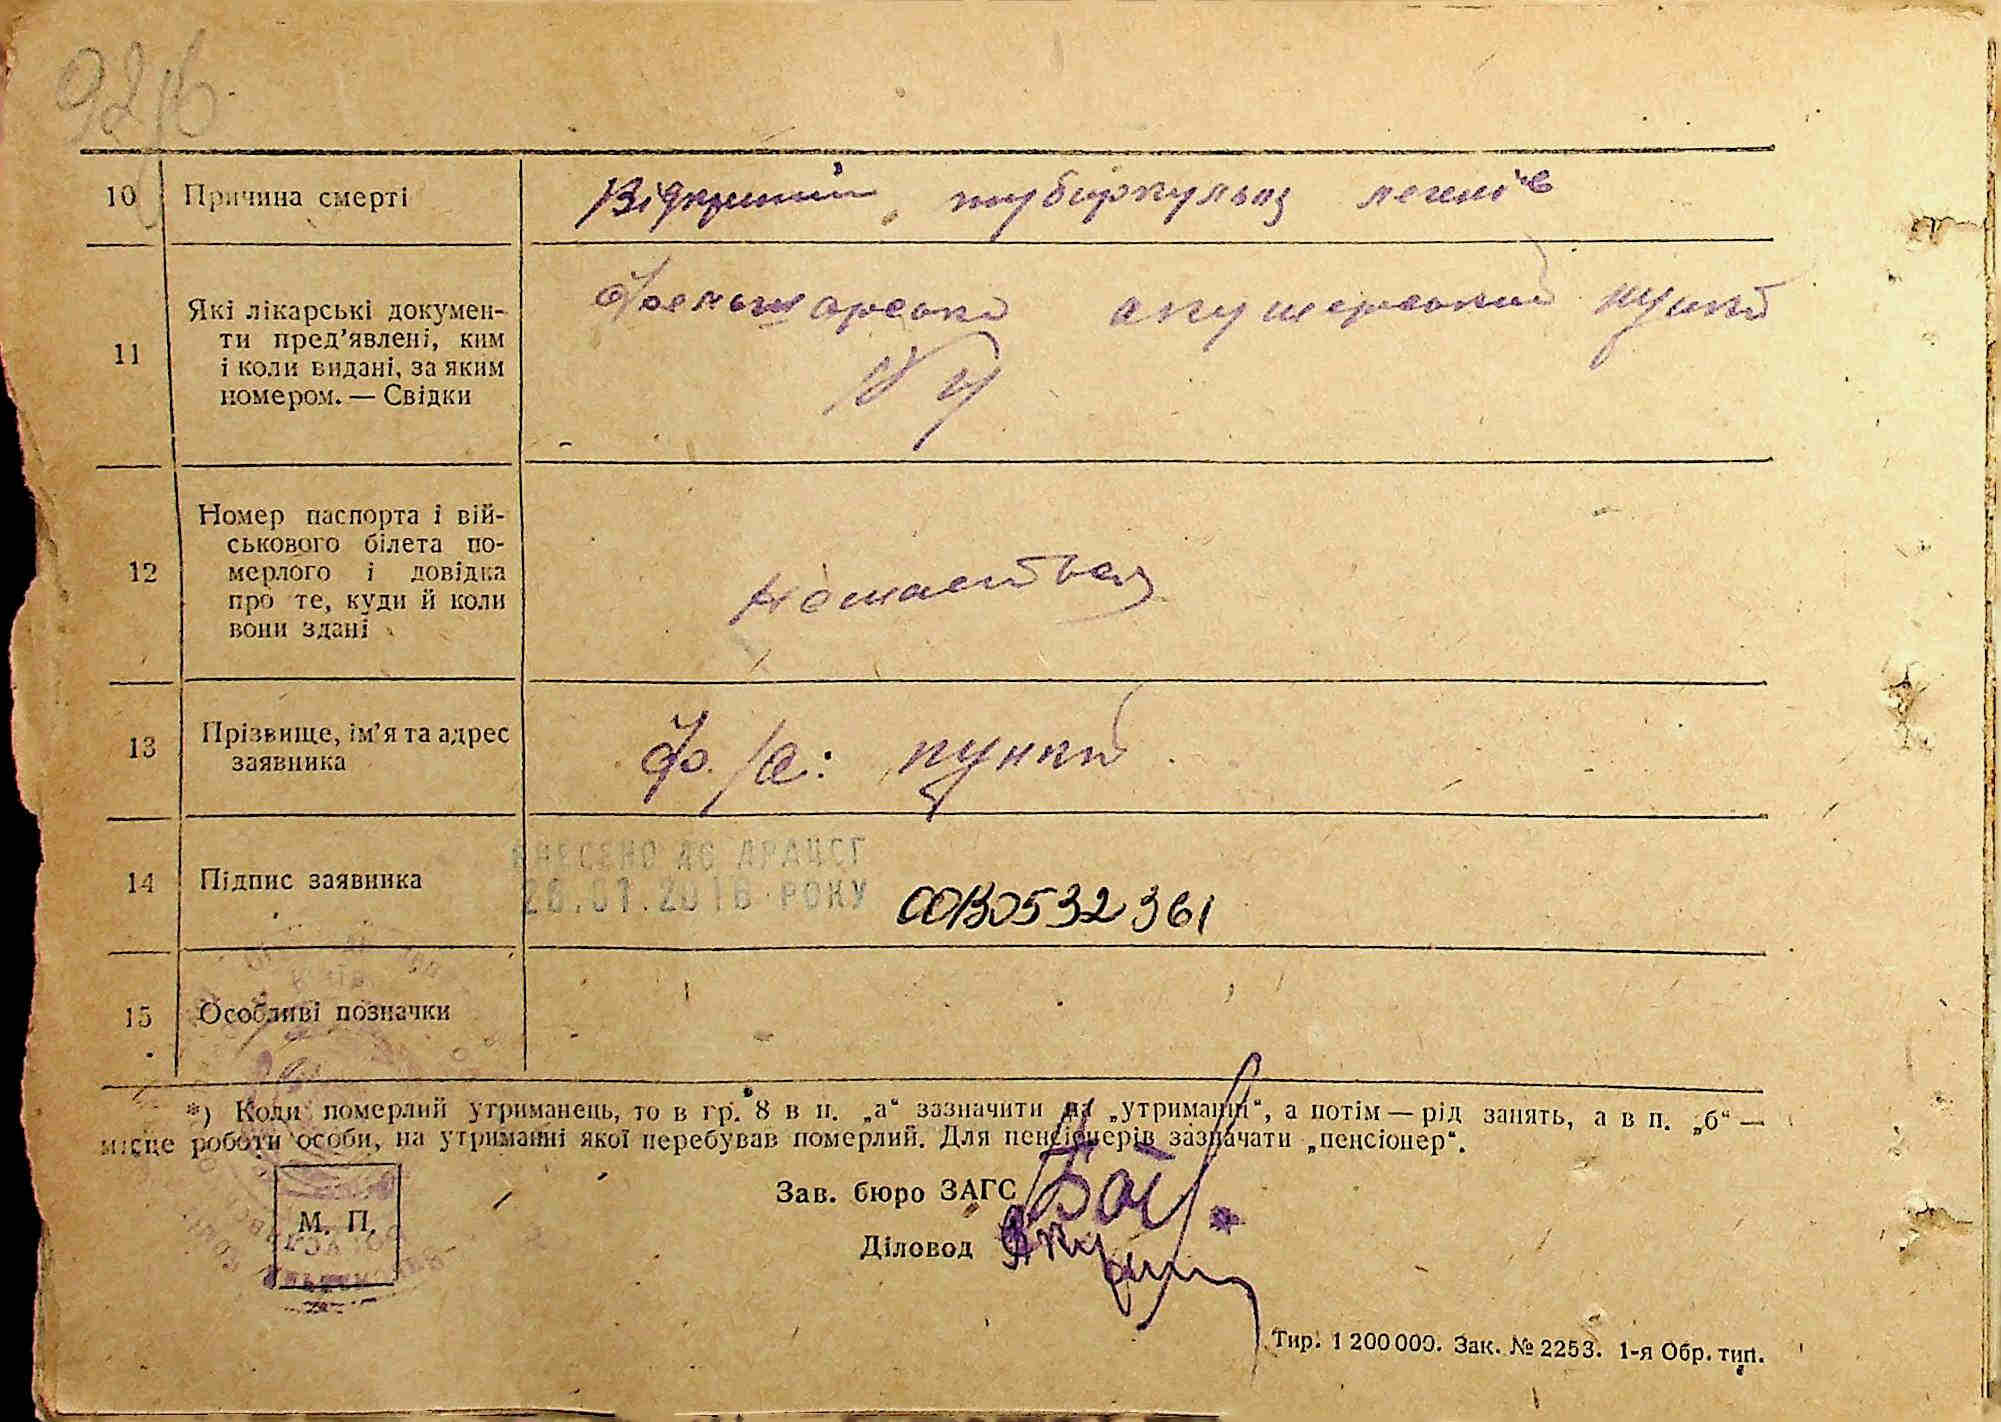 10 Причина смерті Відкритий туберкульоз легенів
11 Які лікарські докумен-
ти пред'явлені, ким
і коли видані, за яким
номером. — Свідки
Фельшарсько акушерський пункт
12 Номер паспорта і вій-
ськового білета по-
мерлого і довідка
про те, куди й коли
вони здані
13 Прізвище, ім'я та адрес
заявника
Ф./а: пункт
14 Підпис заявника
ВНЕСЕНО ДО ДРАЦСГ
26.01.2016 РОКУ
00130532361
15 Особливі позначки
*) Коли померлий утриманець, то в гр. 8 в п. „а“ зазначити на „утриманні“, а потім — рід занять, а в п. „б“ —
місце роботи особи, на утриманні якої перебував померлий. Для пенсіонерів зазначати „пенсіонер“.
Зав. бюро ЗАГС
М. П.
Діловод
Тир. 1 200 000. Зак. № 2253. 1-я Обр. тип.